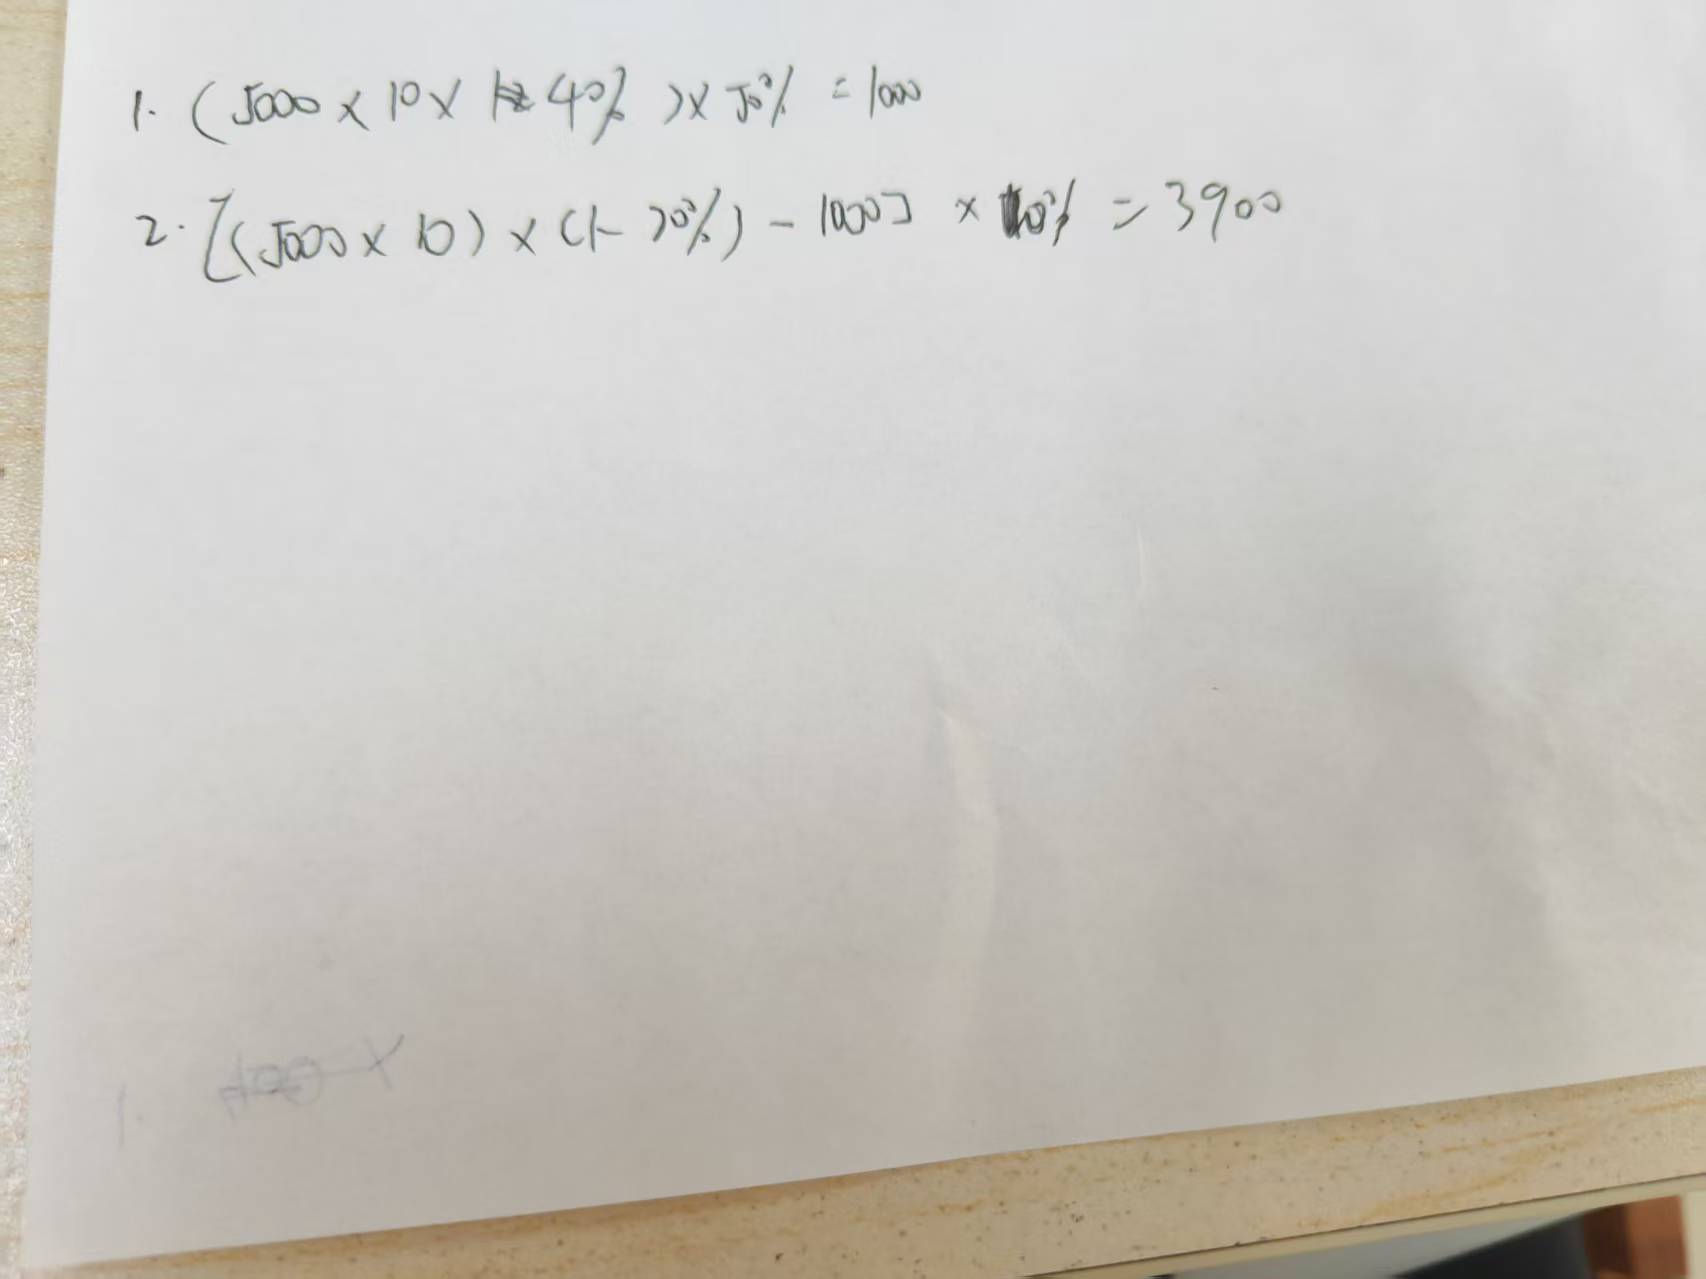 1. (5000 × 10 × 40%) × 50% = 1000
2. [(5000 × 10) × (1- 20%) - 1000] × 10% = 3900
1.